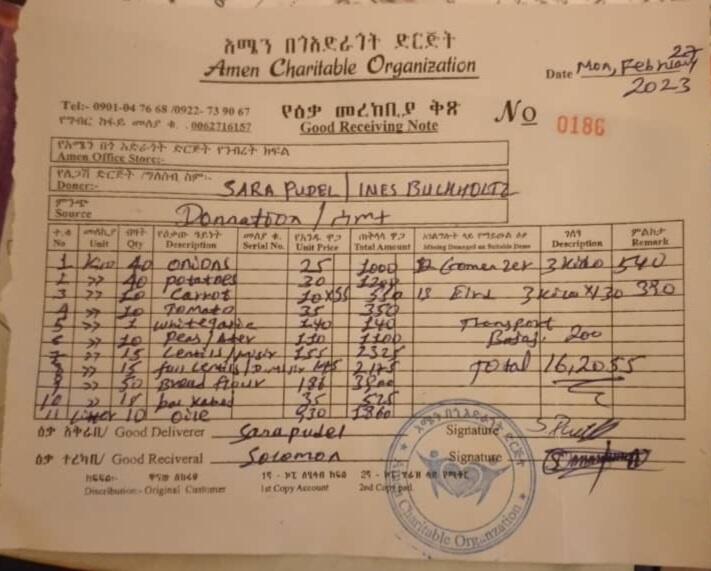 አሜን በጎአድራጎት ድርጅት
Amen Charitable Organization
Date Mon, February 27
2023
Tel:- 0901-04 76 68 /0922- 73 90 67
የግብር ከፋይ መለያ ቁ. .0062716157
የዕቃ መረከቢያ ቅጽ
Good Receiving Note
No 0186
የአሜን በጎ አድራጎት ድርጅት የንብረት ክፍል
Amen Office Store:-
የለጋሽ ድርጅት /ግለሰብ ስም:-
Doner:- SARA PUDEL / INES BUCKHOLTZ
ምንጭ
Source Donnatoon / ስጦታ
ተ.ቁ መለኪያ ብዛት የዕቃው ዓይነት መለያ ቁ. የአንዱ ዋጋ ጠቅላላ ዋጋ ገለፃ ምልከታ
No Unit Qty Description Serial No. Unit Price Total Amount Description Remark
1 Kiro 40 onions 25 1000 12 Gomen zer 3 kido 540
2 >> 40 potatoes 30 1200
3 >> 10 Carrot 10x55 550 13 Eird 3 kico x130 390
4 >> 10 Tomato 35 350
5 >> 1 white garlic 140 140 Transport
6 >> 10 Peas / Ater 110 1100 Bajaj. 200
7 >> 15 Lentils / misir 155 2325
8 >> 15 full Lentils / D.misir 145 2175 Total 16,2055
9 >> 50 Bread flour
10 >> 35 525
11 Litter 10 oile 930 1860
ዕቃ አቅራቢ/ Good Deliverer Sara pudel Signature
ዕቃ ተረካቢ/ Good Receiveral Solomon Signature
ክፍፍል:- ዋናው ለከፋዩ 1ኛ - ኮፒ ለሂሳብ ክፍል
Discribution:- Original Customer 1st Copy Account 2nd Copy pad.
አሜን በጎ አድራጎት ድርጅት
Amen Charitable Organization